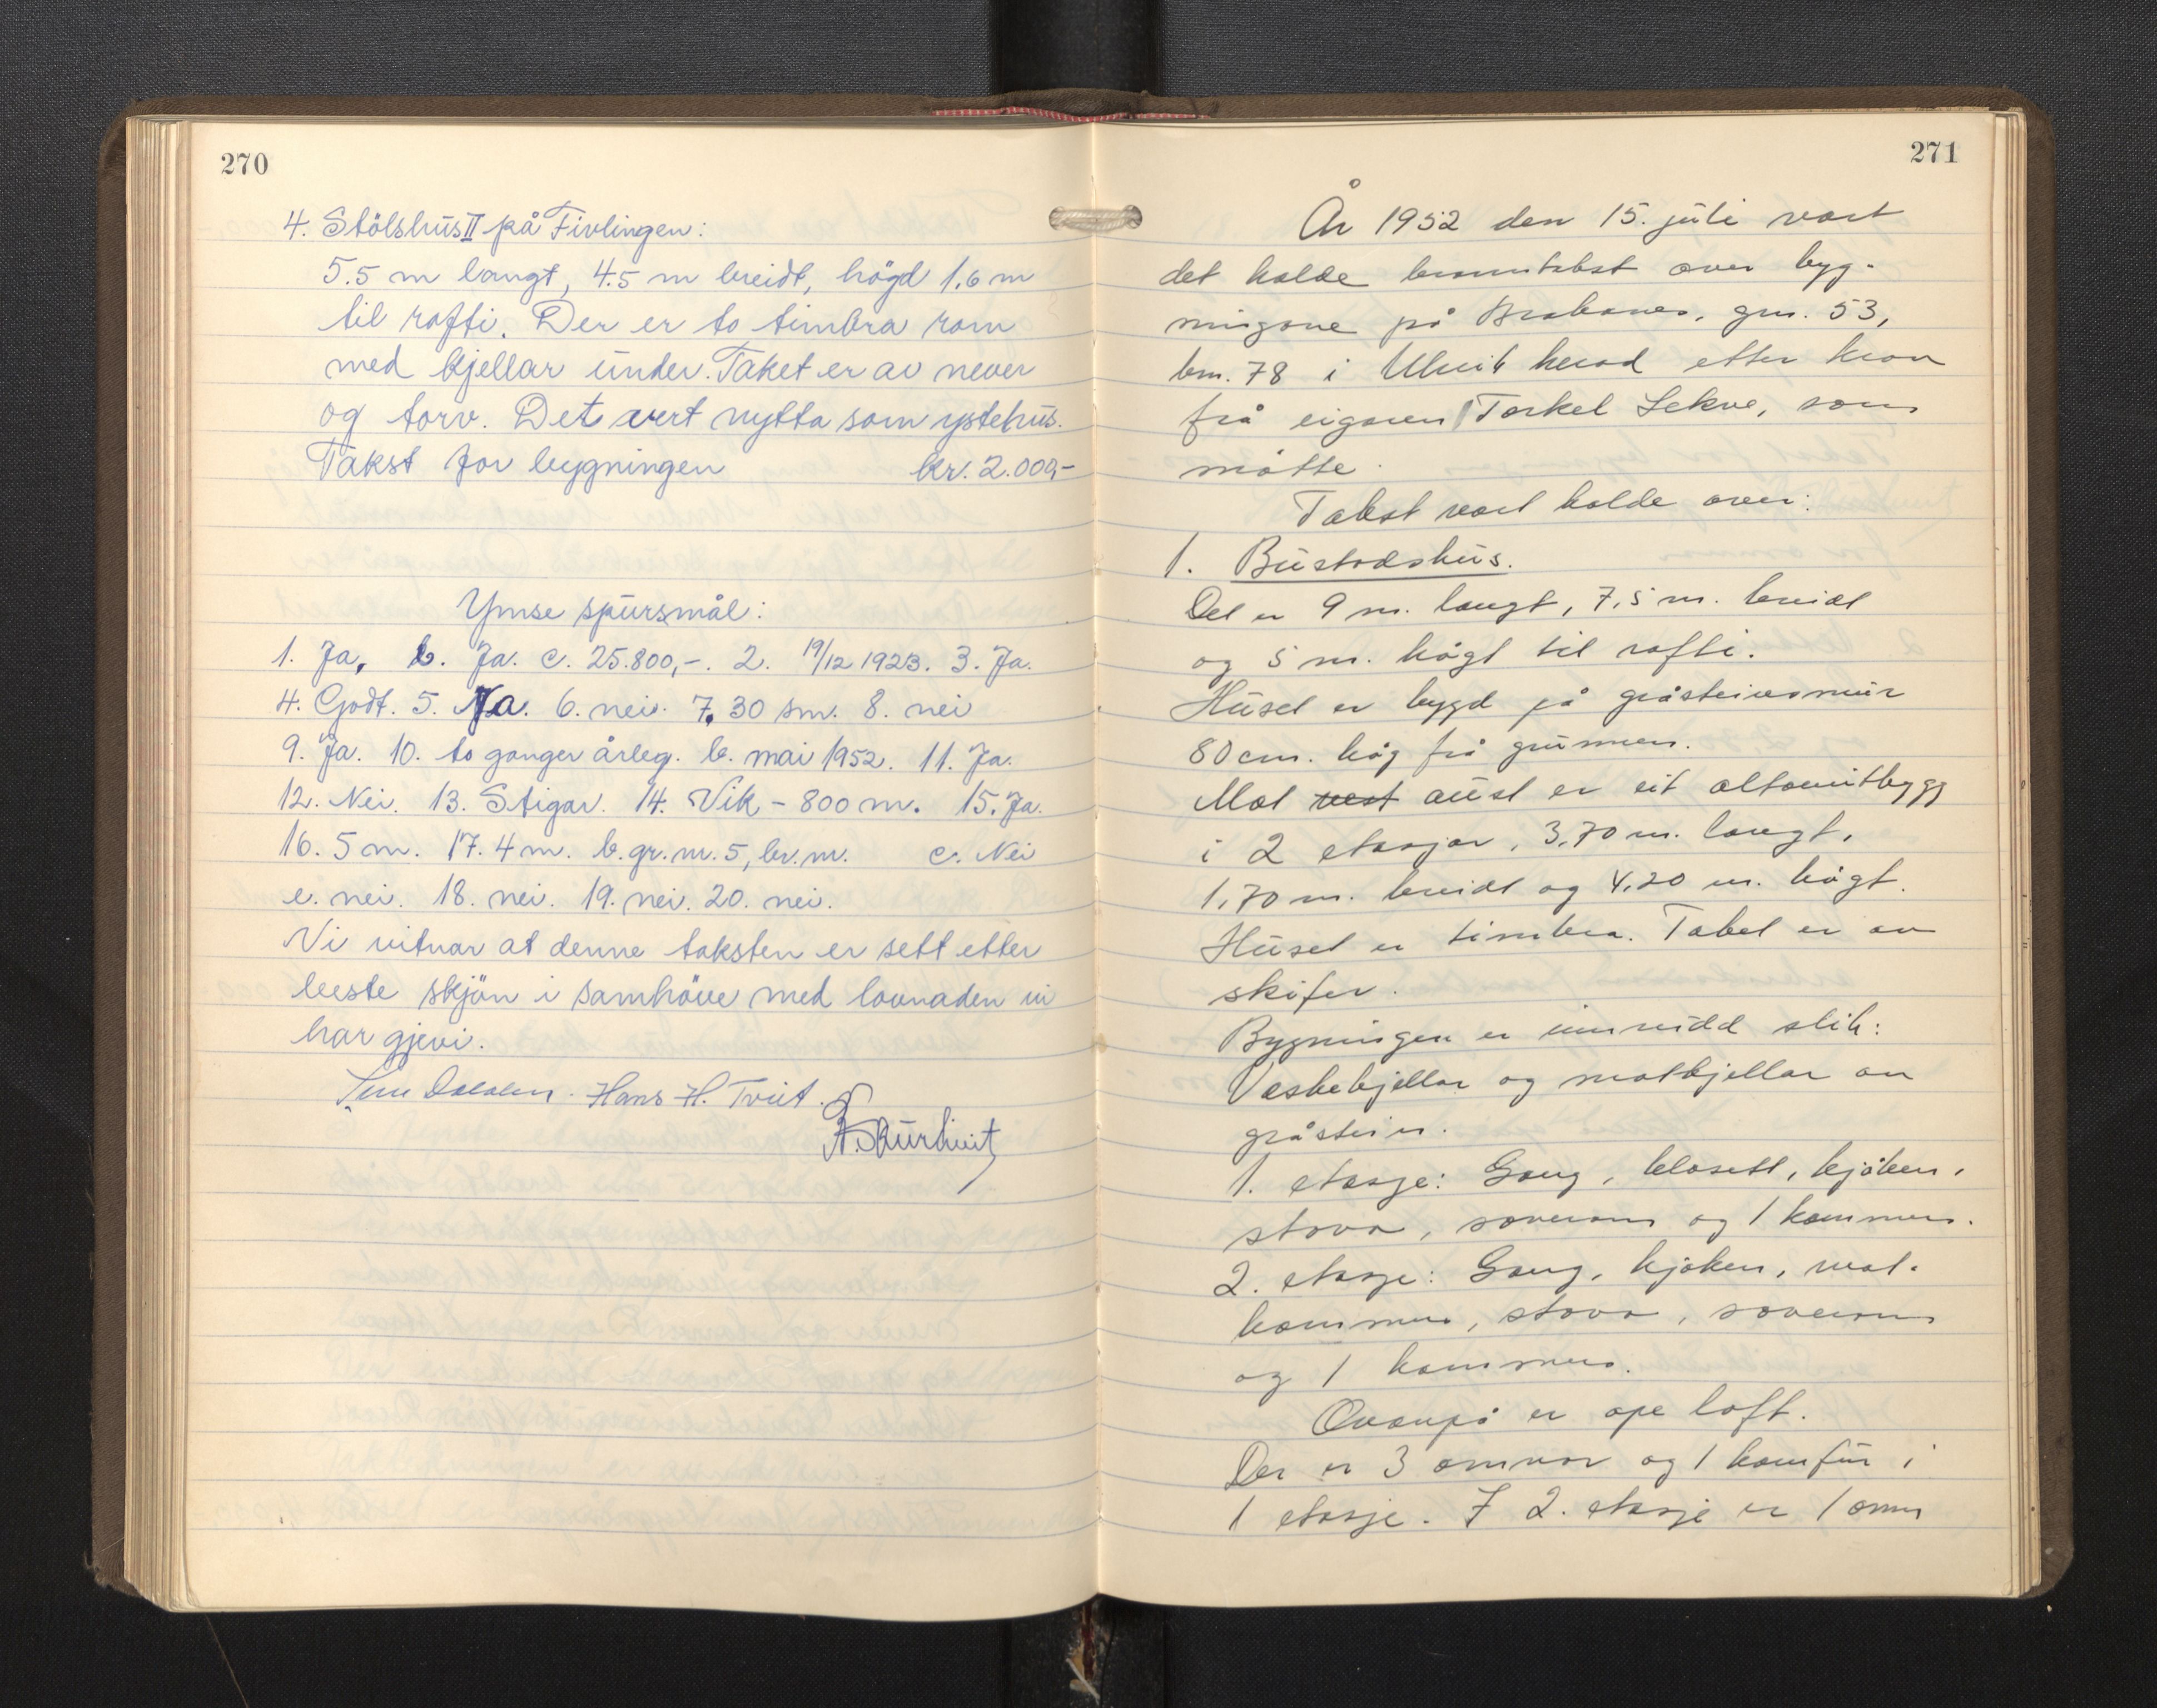 270
4. Stölshus II på Fivlingen:
5.5 m langt, 4.5 m breidt, högd 1.6 m
til rafti. Der er to timbra rom
med kjellar under. Taket er av never
og torv. Det vert nytta som ystehus.
Takst for bygningen kr. 2.000,-
Ymse spursmål:
1. Ja, b. Ja. c. 25.800,-. 2. 19/12 1923. 3. Ja.
4. Godt. 5. Ja. 6. nei. 7. 30 sm. 8. nei
9. Ja. 10. to gonger årleg. b. mai 1952. 11. Ja.
12. Nei. 13. Stigar. 14. Vik - 800 m. 15. Ja.
16. 5 m. 17. 4 m. b. gr. m. 5, br. m. c. Nei
e. nei. 18. nei. 19. nei. 20. nei.
Vi vitnar at denne taksten er sett etter
beste skjön i samhöve med lovnaden vi
har gjevi.
Hans H. Tveit.
271
År 1952 den 15. juli vart
det halde branntakst over byg-
ningane på gnr. 53,
bnr. 78 i Ulvik herad etter krav
frå eigaren Torkel Lekve, som
møtte.
Takst vart halde over:
1. Bustadshus.
Det er 9 m. langt, 7,5 m. breidt
og 5 m. høgt til rafti.
Huset er bygd på gråsteinsmur
80 cm. høg frå grunnen.
Mot vest aust er eit altanutbygg
i 2 etasjar, 3,70 m. langt,
1,70 m. breidt og 4,20 m. høgt.
Huset er timbra. Taket er av
skifer.
Bygningen er innreidd slik:
Vaskekjellar og matkjellar av
gråstein.
1. etasje: Gang, klosett, kjøken,
stova, soverom og 1 kammers.
2. etasje: Gang, kjøken, mat-
kammers, stova, soverom
og 1 kammers.
Ovanpå er ope loft.
Der er 3 omnar og 1 komfur i
1 etasje. I 2. etasje er 1 omn